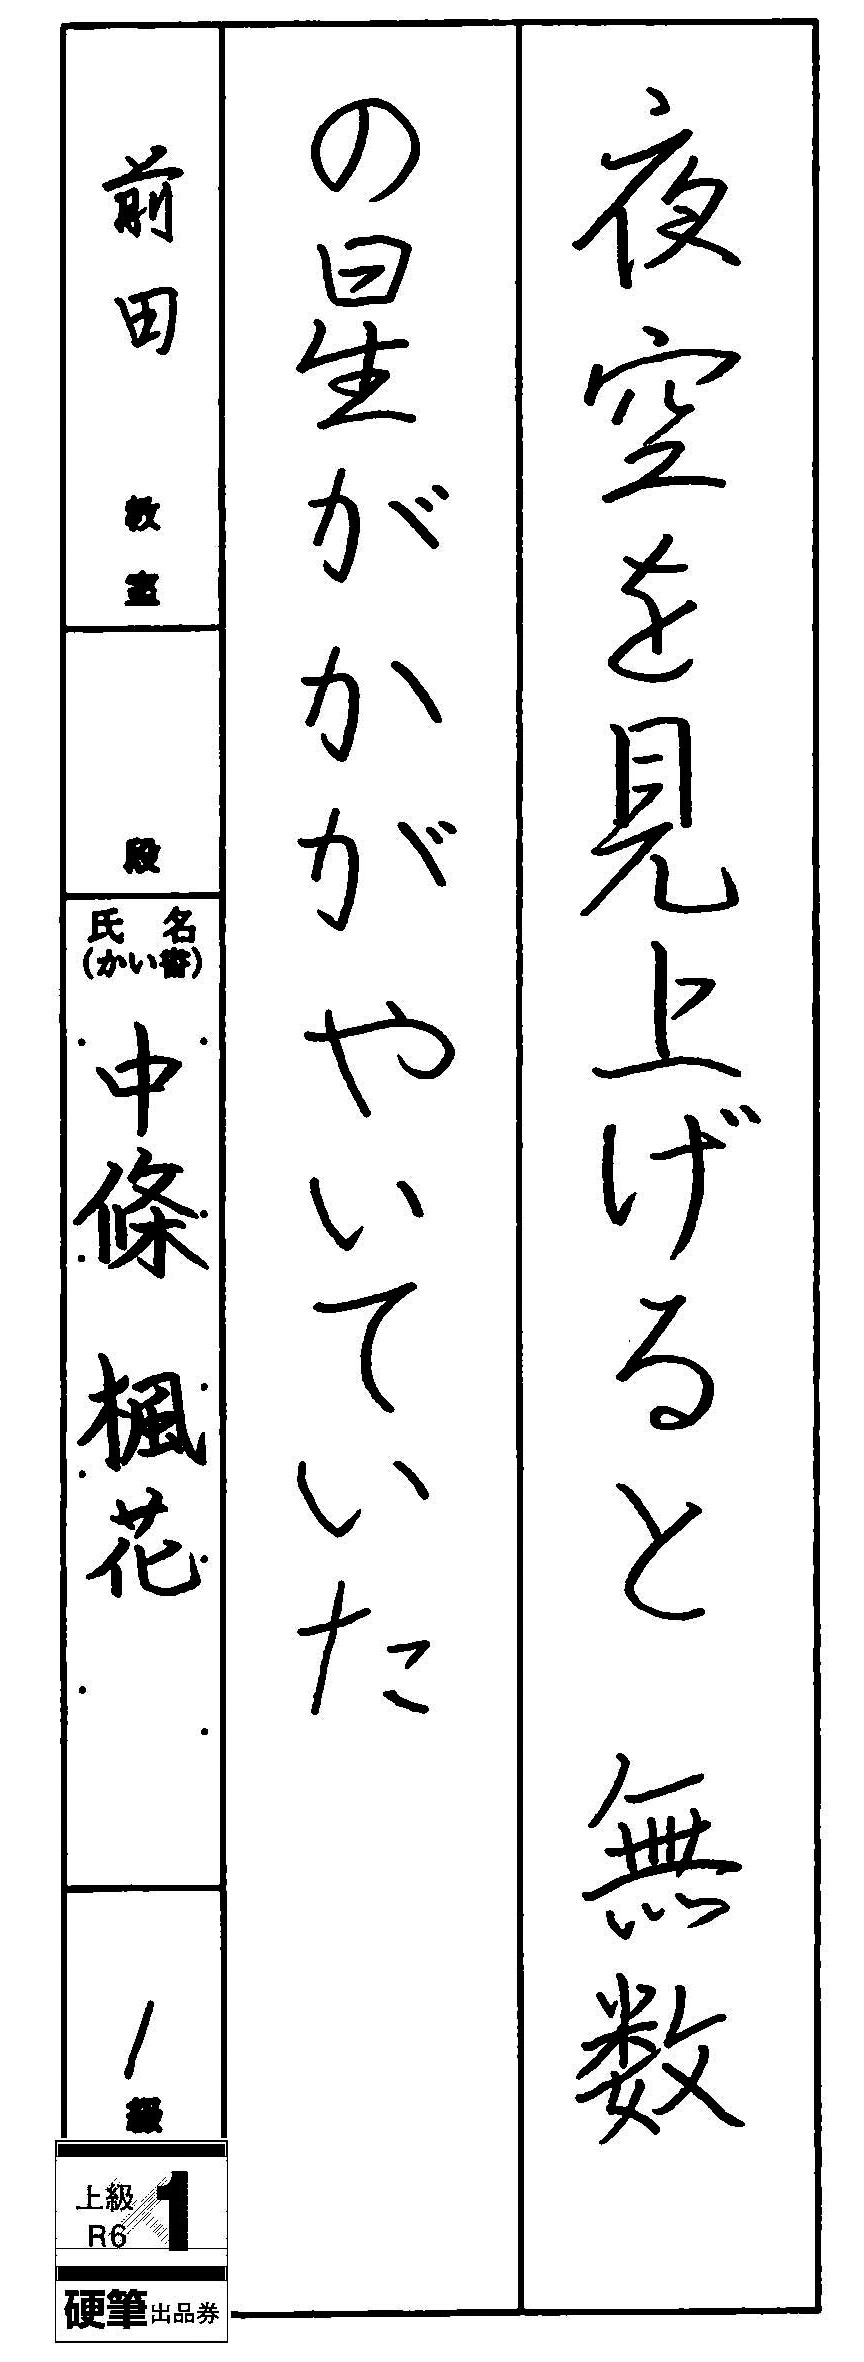 夜空を見上げると 無数
の星がかがやいていた
前田 教室
段
氏 名
(かい書)
中條 楓花
1 級
上級
R6
1
硬筆出品券